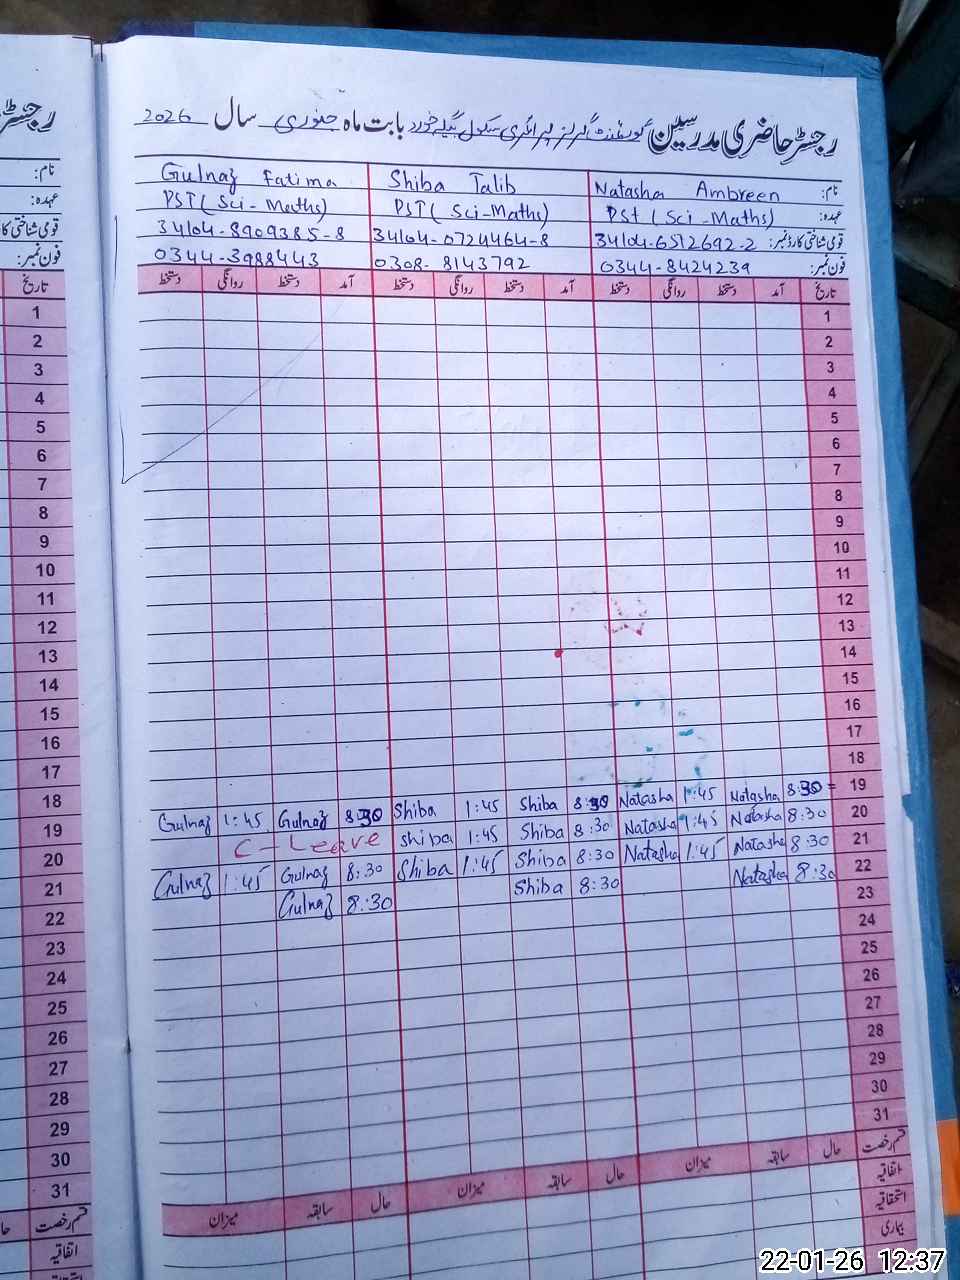 رجسٹر حاضری مدرسین گورنمنٹ گرلز پرائمری سکول بابت ماہ جنوری سال 2026
نام: Natasha Ambreen Shiba Talib Gulnaz Fatima
عہدہ: PST (Sci-Maths) PST (Sci-Maths) PST (Sci-Maths)
قومی شناختی کارڈ نمبر: 34104-6512692-2 34104-0724464-8 34104-8909385-8
فون نمبر: 0344-8424239 0308-8143792 0344-3988443
تاریخ آمد دستخط روانگی دستخط آمد دستخط روانگی دستخط آمد دستخط روانگی دستخط
1
2
3
4
5
6
7
8
9
10
11
12
13
14
15
16
17
18
19 8:30 Natasha 1:45 Natasha 8:30 Shiba 1:45 Shiba 8:30 Gulnaz 1:45 Gulnaz
20 8:30 Natasha 1:45 Natasha 8:30 Shiba 1:45 shiba C-Leave
21 8:30 Natasha 1:45 Natasha 8:30 Shiba 1:45 Shiba 8:30 Gulnaz 1:45 Gulnaz
22 8:30 Natasha 8:30 Shiba 8:30 Gulnaz
23
24
25
26
27
28
29
30
31
قسم رخصت حال سابقہ میزان حال سابقہ میزان حال سابقہ میزان
اتفاقیہ
استحقاقیہ
بیماری
رجسٹر
نام:
عہدہ:
قومی شناختی کار
فون نمبر:
تاریخ
1
2
3
4
5
6
7
8
9
10
11
12
13
14
15
16
17
18
19
20
21
22
23
24
25
26
27
28
29
30
31
قسم رخصت
اتفاقیہ
22-01-26 12:37